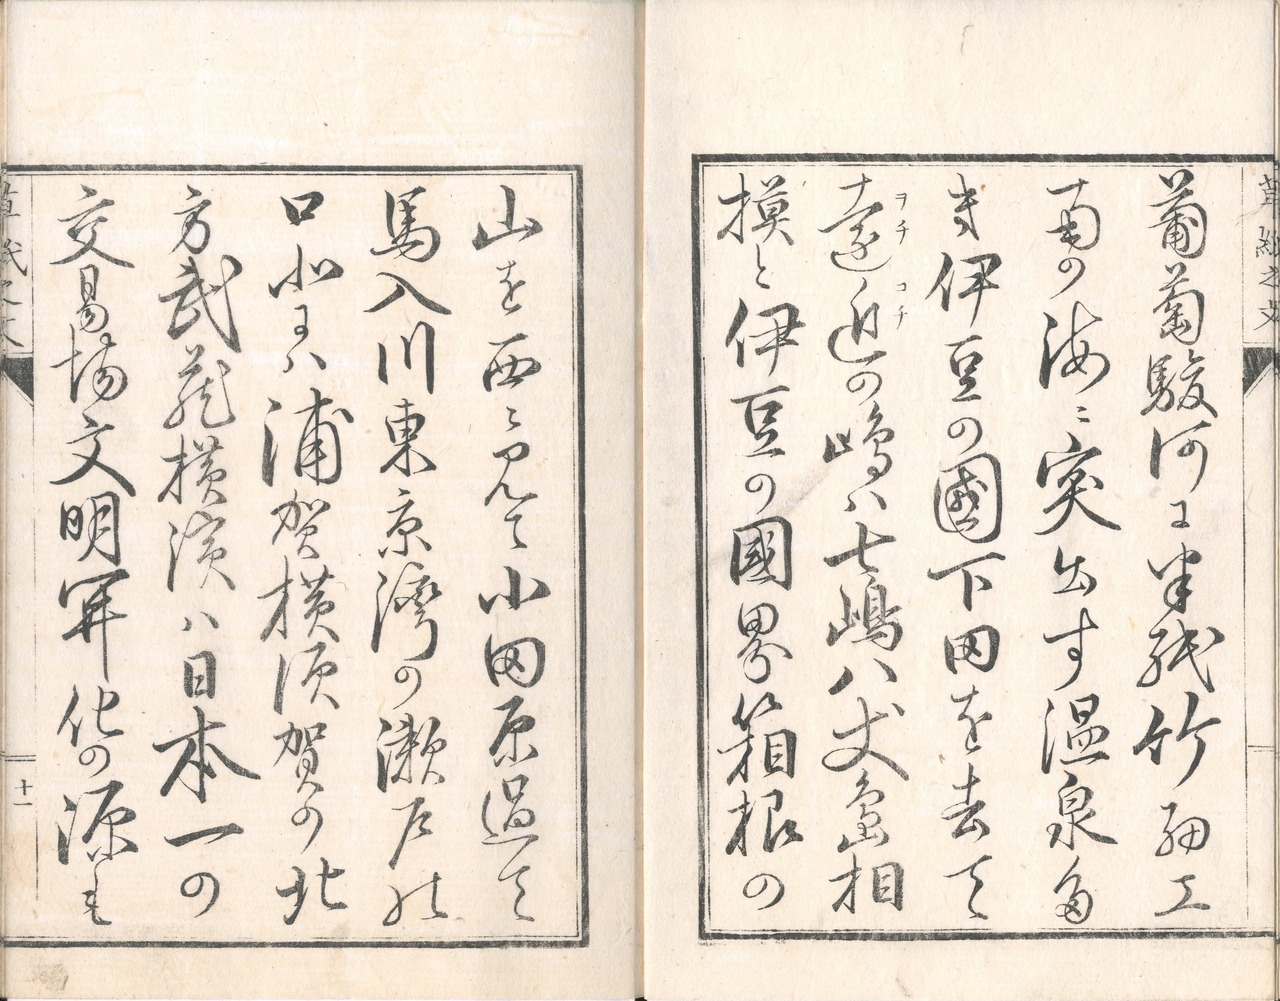 草紙之文
葡萄駿河に半紙竹細工
南の海に突出す温泉多
き伊豆の國下田を去て
ヲチ コチ
遠近の嶋ハ七嶋八丈島相
摸と伊豆の國界箱根の
山を西に見て小田原過て
馬入川東京灣の瀬戸の
口 ハ浦賀横須賀の北
方武蔵横濱ハ日本一の
交易場文明開化の源も
草紙之文
十一